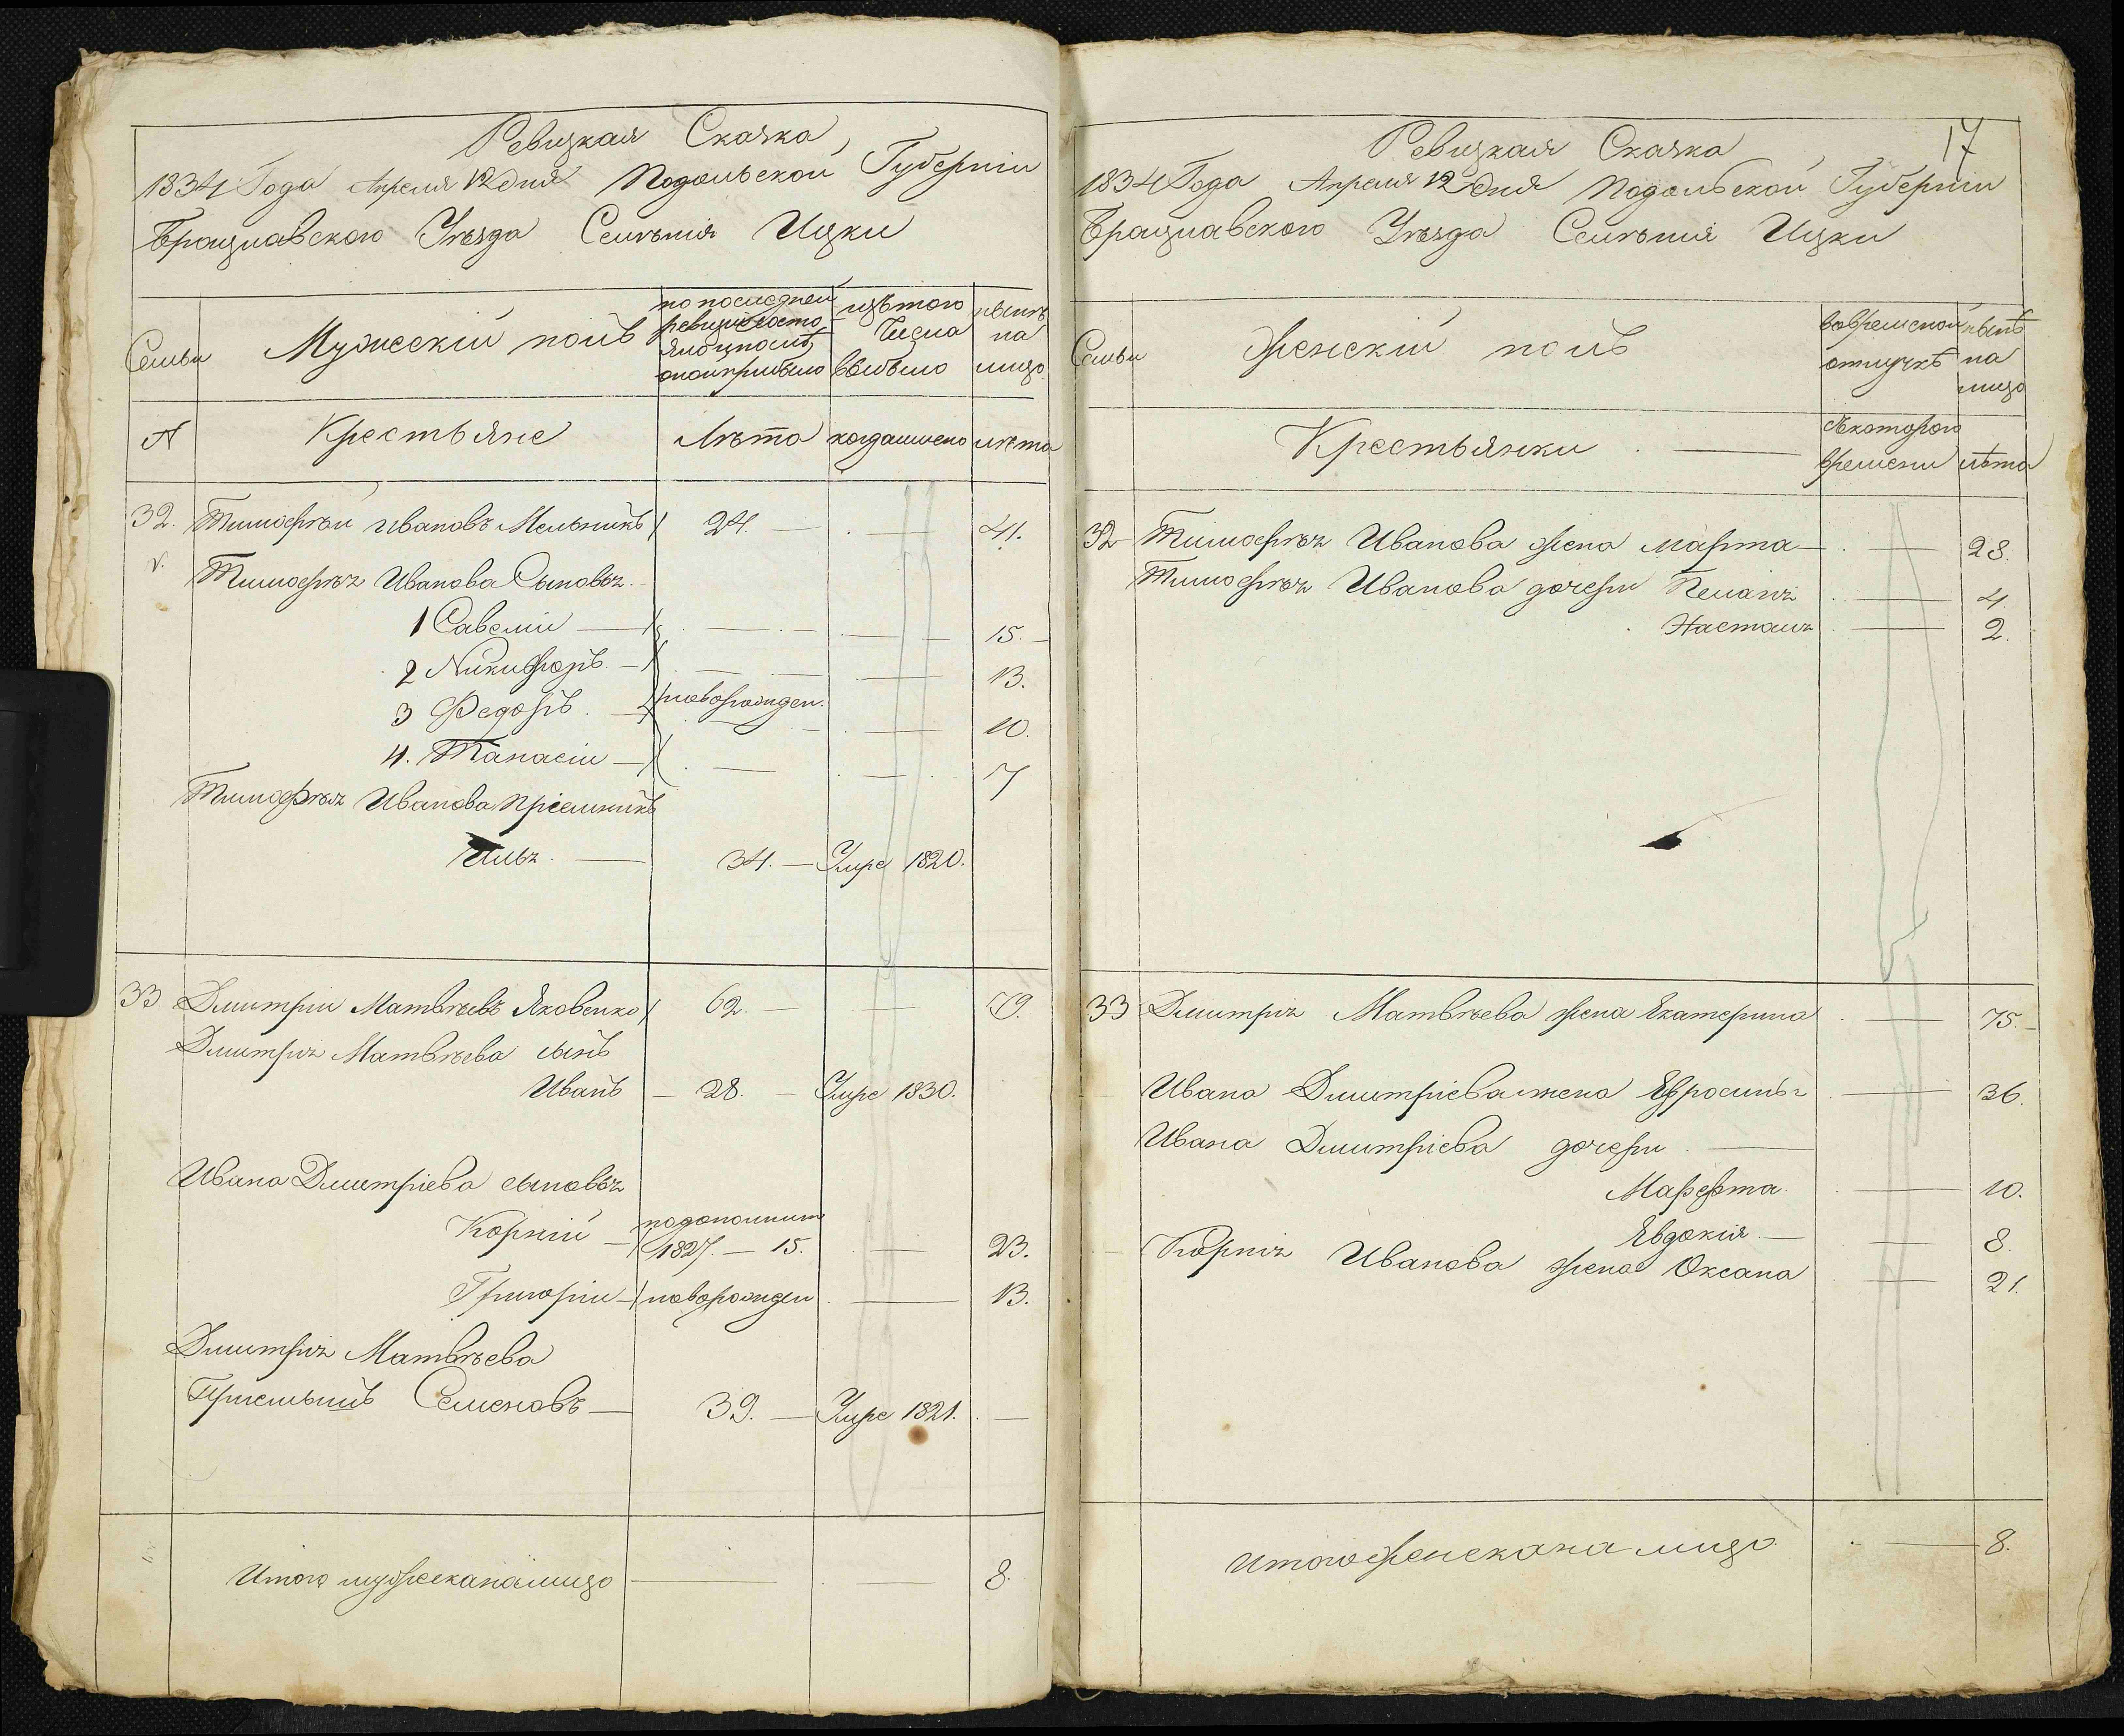 Ревизкая Сказка
1834 Года Апреля 12 дня Подольской Губернiи
Брацлавского Уѣзда Селѣнiя Ицки
Семьи
Мужескiй полъ
по последней ревизiи состояло и после оной прибыло
изътого Числа выбыло
нынѣ на лицо
N
Крестьяне
Лѣта
когда имено
лѣта
32. Тимофѣй Ивановъ Мельникъ 24. 41.
Тимофѣя Иванова Сыновья
1 Савелiи 15.
2 Никифоръ 13.
3 Федоръ новорожден. 10.
4. Танасiи 7
Тимофѣя Иванова Прiемникъ
Илья 34. Умре 1820.
33 Дмитрiи Матвѣевъ Яковенко 62. 79.
Дмитрiя Матвѣева сынъ
Иванъ 28. Умре 1830.
Ивана Дмитрiева сыновья
Корнiй по дополнит 1827. 15. 23.
Григорiи новорожден 13.
Дмитрiя Матвѣева
Семеновъ 39. Умре 1821.
Итого мужеска на лицо 8.
17
Ревизкая Сказка
1834 Года Апреля 12 дня Подольской Губернiи
Брацлавского Уѣзда Селѣнiя Ицки
Семьи
Женскiй полъ
вовременой отлучкѣ
нынѣ на лицо
Крестьянки
Скоторого времени
лѣта
32 Тимофѣя Иванова жена Марта 28.
Тимофѣя Иванова дочери Пелагiя 4.
Настася 2.
33 Дмитрiя Матвѣева жена Екатерина 75.
Ивана Дмитрiева жена Ефросинья 36.
Ивана Дмитрiева дочери
Марфта 10.
Евдокiя 8.
Корнiя Иванова жена Оксана 21.
Итого женска на лицо 8.